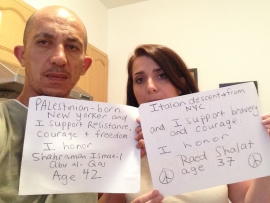 PALestinian-born
New yorker and
I support Resistance,
courage + freedom
I honor
Shahraman Ismail
Abu al-Qaj
Age 42
Italian descent from
NYC
and I support bravery
and courage.
I honor
Raed Shalat
age 37